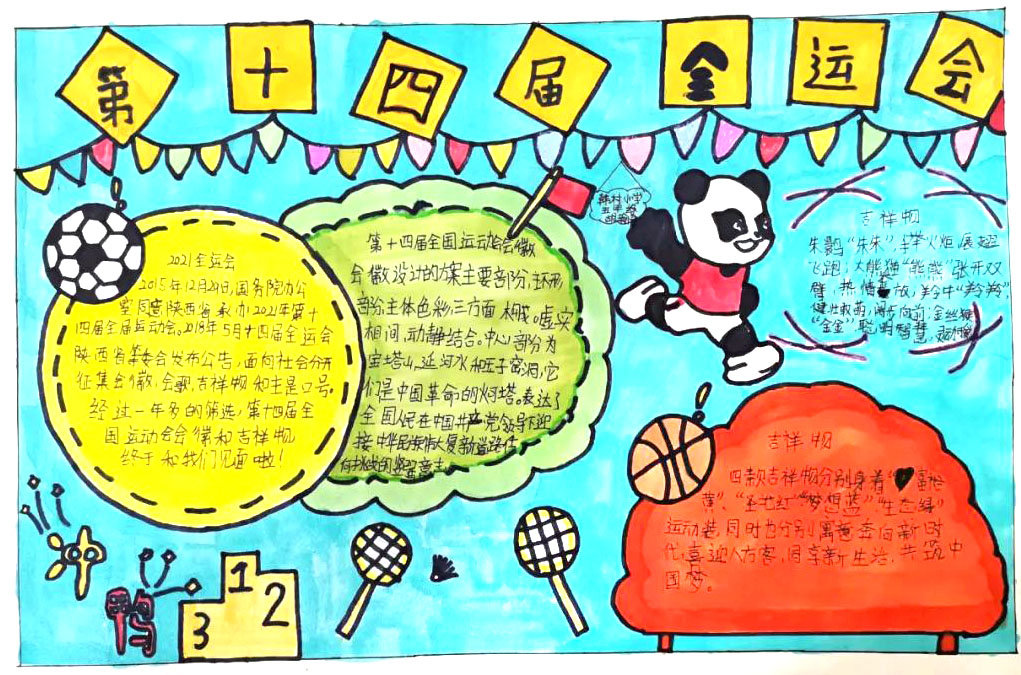 第十四届全运会
2021全运会
2015年12月29日,国务院办公
室同意陕西省承办2021年第十
四届全届运动会。2018年5月十四届全运会
陕西省筹委会发布公告,面向社会分开
征集会徽,会歌,吉祥物和主是口号。
经过一年多的筛选,第十四届全
国运动会会徽和吉祥物
终于和我们见面啦!
第十四届全国运动会会徽
会徽设计的方案主要部分,环形
部分主体色彩三方面 构成。虚实
相间,动静结合。中心部分为
宝塔山,延河水和庄子窑洞,它
们是中国革命的灯塔。表达了
全国人民在中国共产党领导下迎
接中华民族伟大复新道路
韩村小学
吉祥物
朱鹮“朱朱”,手举火炬,展翅
飞跑;大熊猫“熊熊”张开双
臂,热情 放,羚牛“羚羚”
健壮敦萌,阔步向前;金丝猴
“金金”聪明智慧,
吉祥物
四款吉祥物分别身着“
黄”、“圣地红”“梦想蓝”“生态绿”
运动装,同时也分别寓意奔向新时
代,喜迎八方客,同享新生活,共筑中
国梦。
冲
鸭
1
2
3